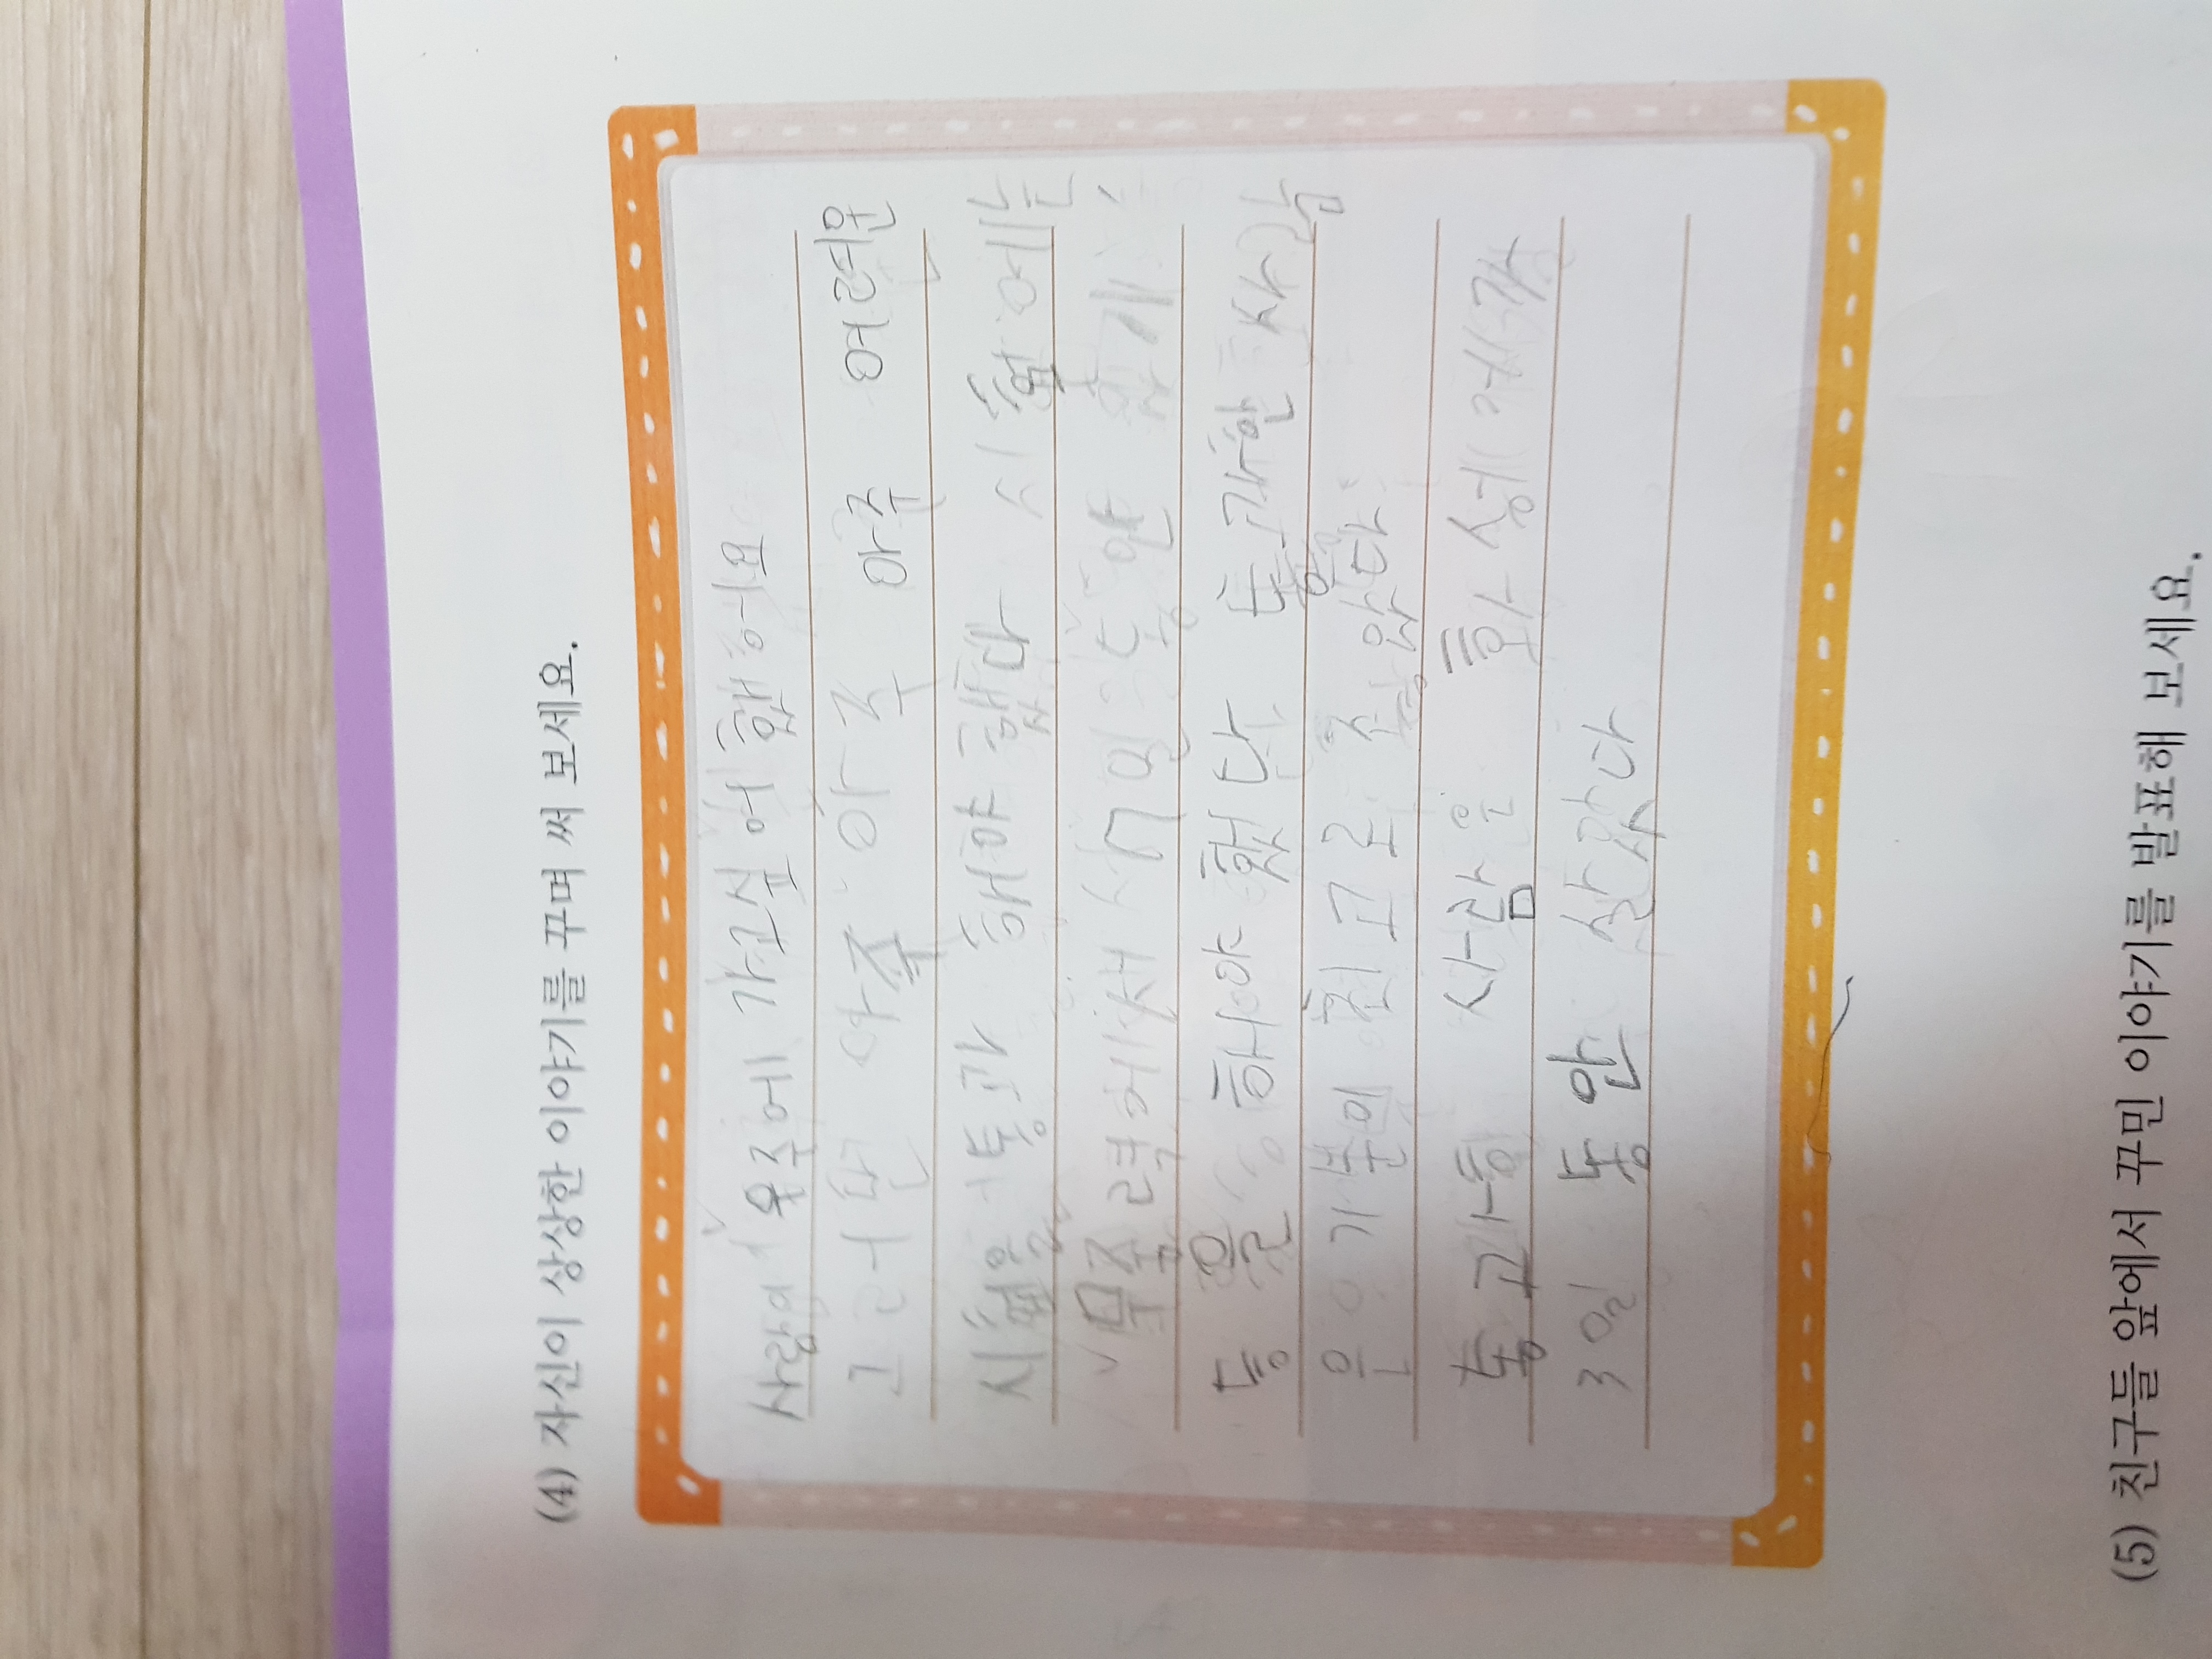 (4) 자신이 상상한 이야기를 꾸며 써 보세요.
사람이 우주에 가고싶어 했어요
그러면 아주 아주 아주 어려운
시험을 통과 해야 했다 시험에는
무중력에서 7일 동안
통을 해야 했다 통과한 사람
은 기분이 최고로 좋았다
통과한 사람은 화성에 가
3일 동안 살았다
(5) 친구들 앞에서 꾸민 이야기를 발표해 보세요.